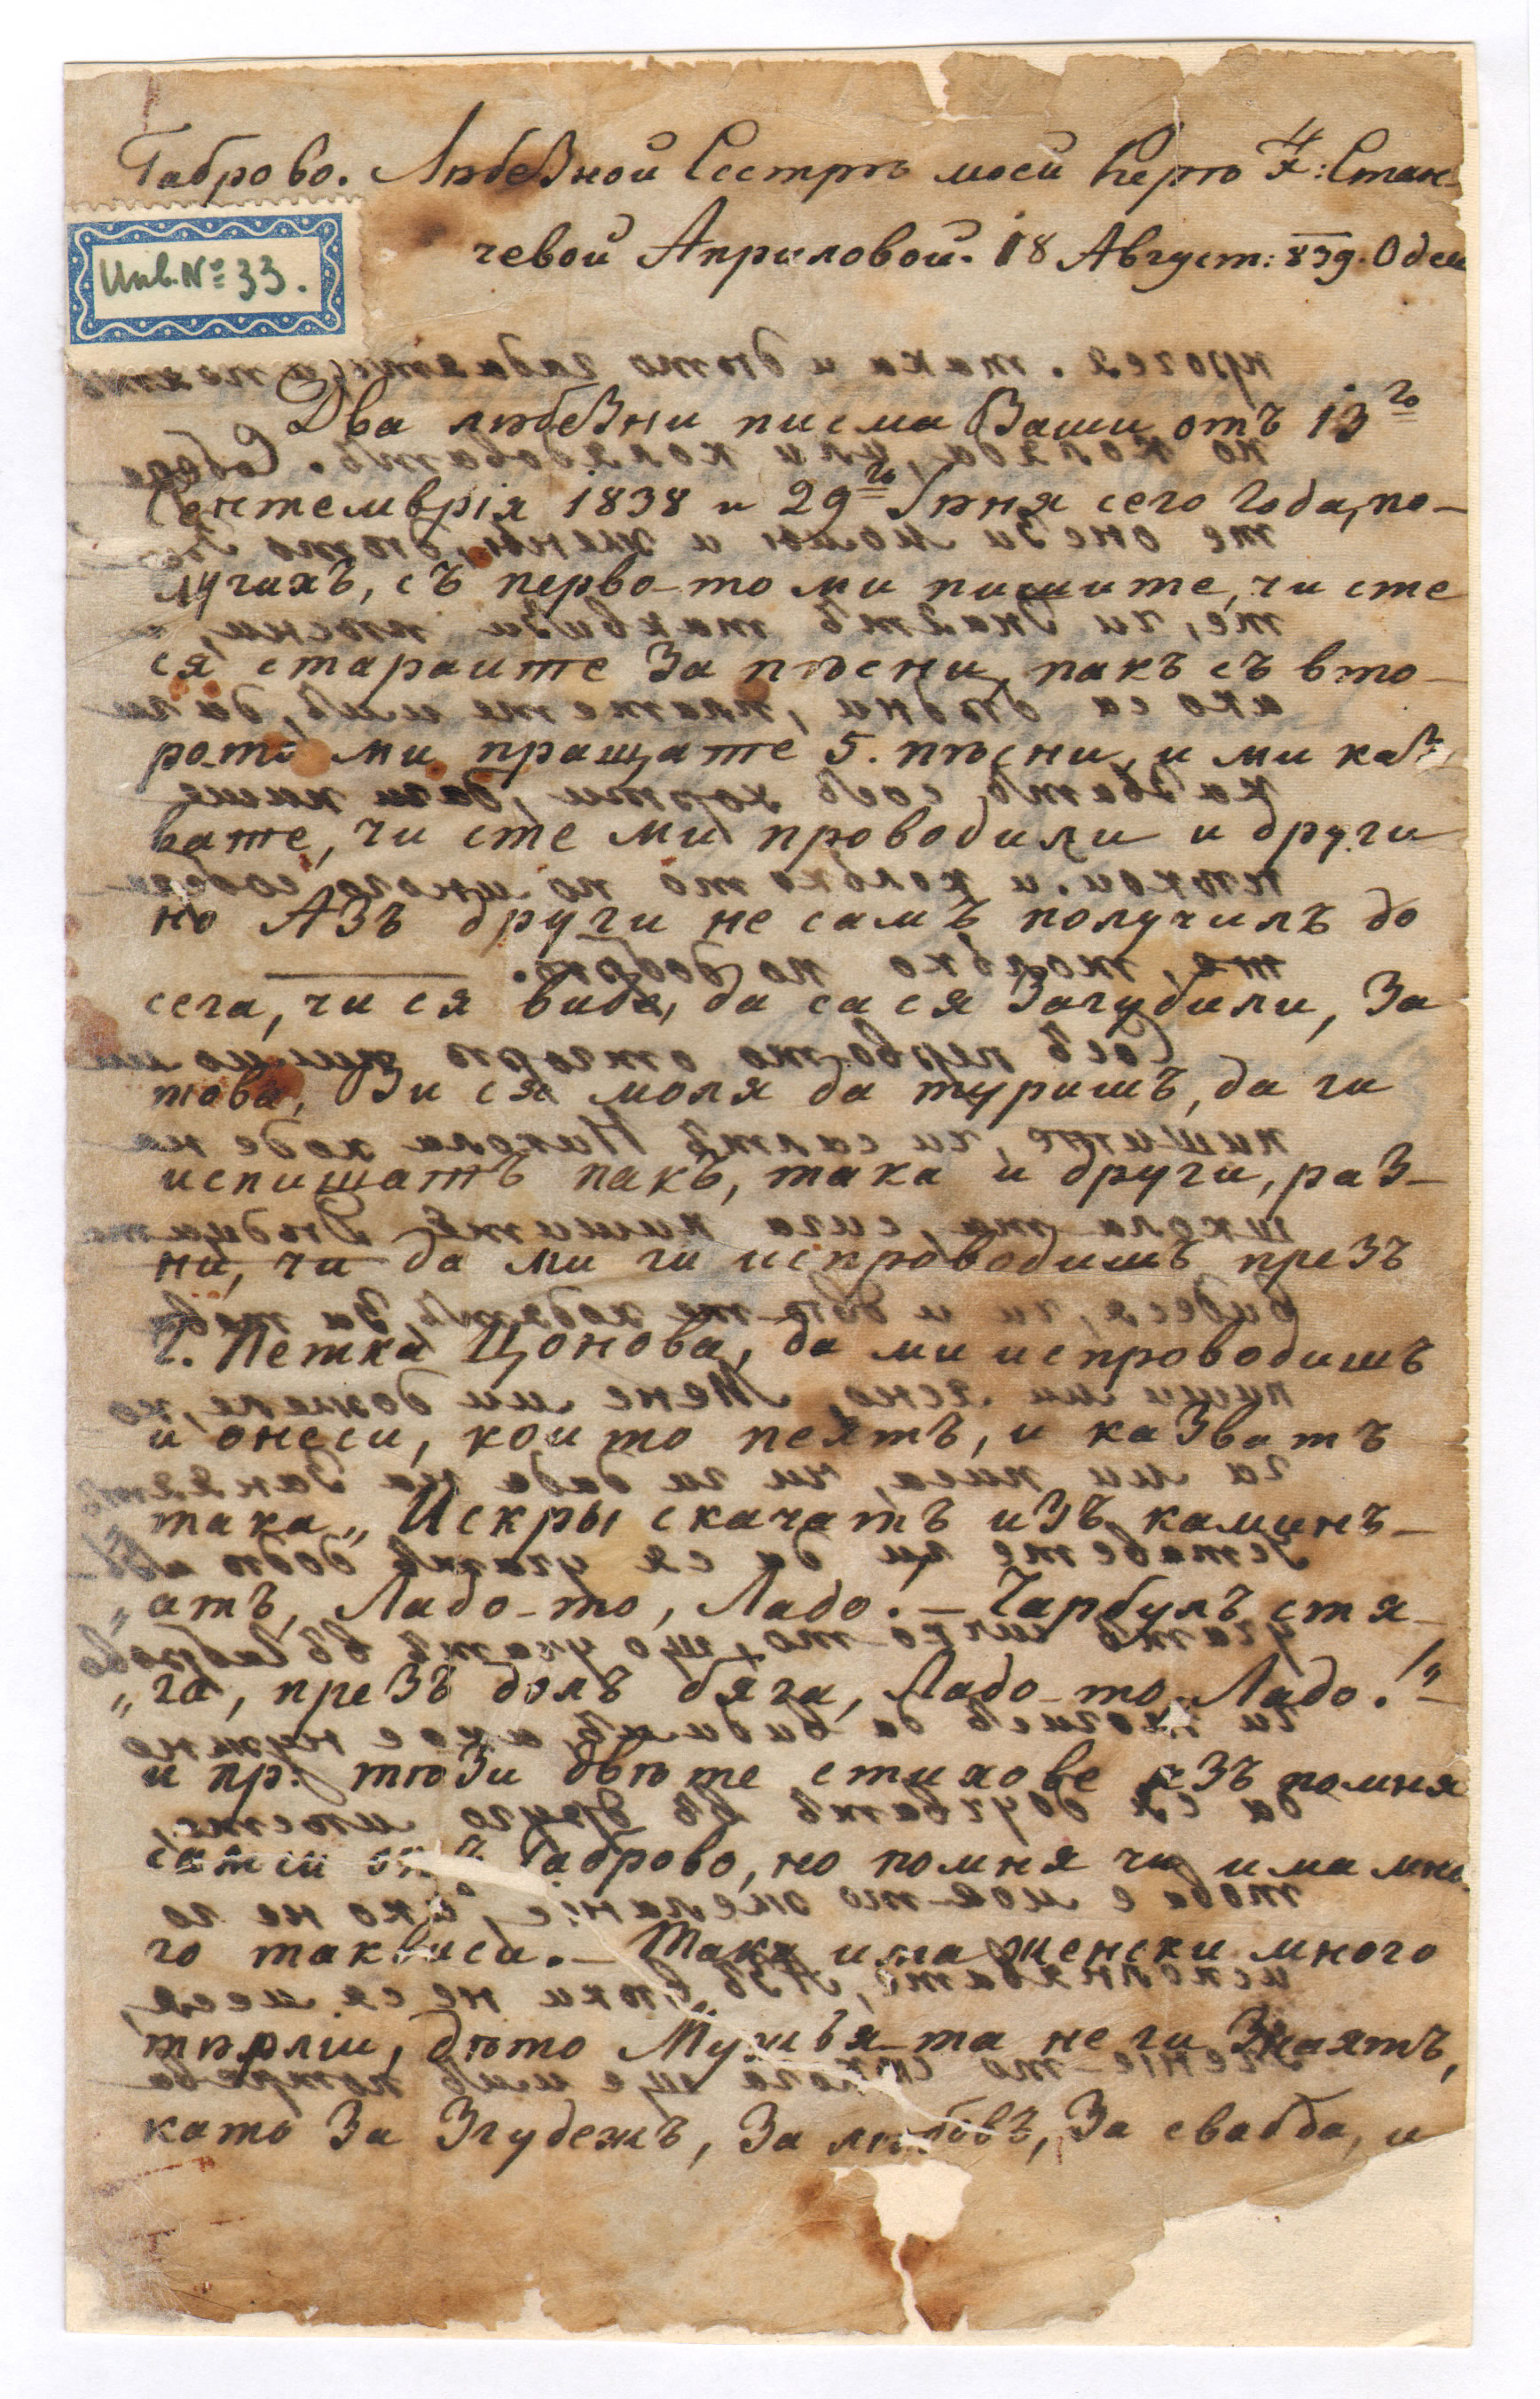 Габрово. Любезной Сестрѣ моей Керѣ Х: Стан-
чевой Априловой. 18 Август: 839. Одеш
Инв. № 33.
Два любезни писма Ваши отъ 13го
Септемврія 1838 и 29го Іюня сего года, по-
лучихъ, съ перво-то ми пишите, чи сте
ся стараите за пѣсни, пакъ съ вто-
рото ми пращате 5. пѣсни, и ми каз-
вате, чи сте ми проводили и други
но Азъ други не самъ получилъ до
сега, чи ся види, да са ся загубили, За
това, Ви ся моля да туришъ, да ги
испишатъ пакъ, така и други, раз-
ни, чи да ми ги испроводишъ презъ
Г. Петка Цонова, да ми испроводишъ
и онеси, които пеятъ, и казватъ
така „Искры скачатъ изъ каминъ-
„атъ, Ладо-то, Ладо. — Чарбулъ стя-
„га, презъ долъ бяга, Ладо-то, Ладо!“ —
и пр. тѣзи двѣте стихове азъ помня
Габрово, но помня чи има мно-
го таквиси. — Така има женски много
тюрліи, дѣто Мужъя-та не ги знаятъ,
като За Згудежъ, За любовъ, За свадба, и